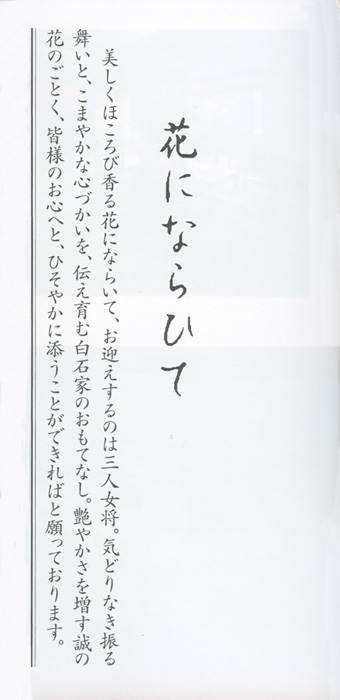 花にならひて
美しくほころび香る花にならいて、お迎えするのは三人女将。気どりなき振る
舞いと、こまやかな心づかいを、伝え育む白石家のおもてなし。艶やかさを増す誠の
花のごとく、皆様のお心へと、ひそやかに添うことができればと願っております。